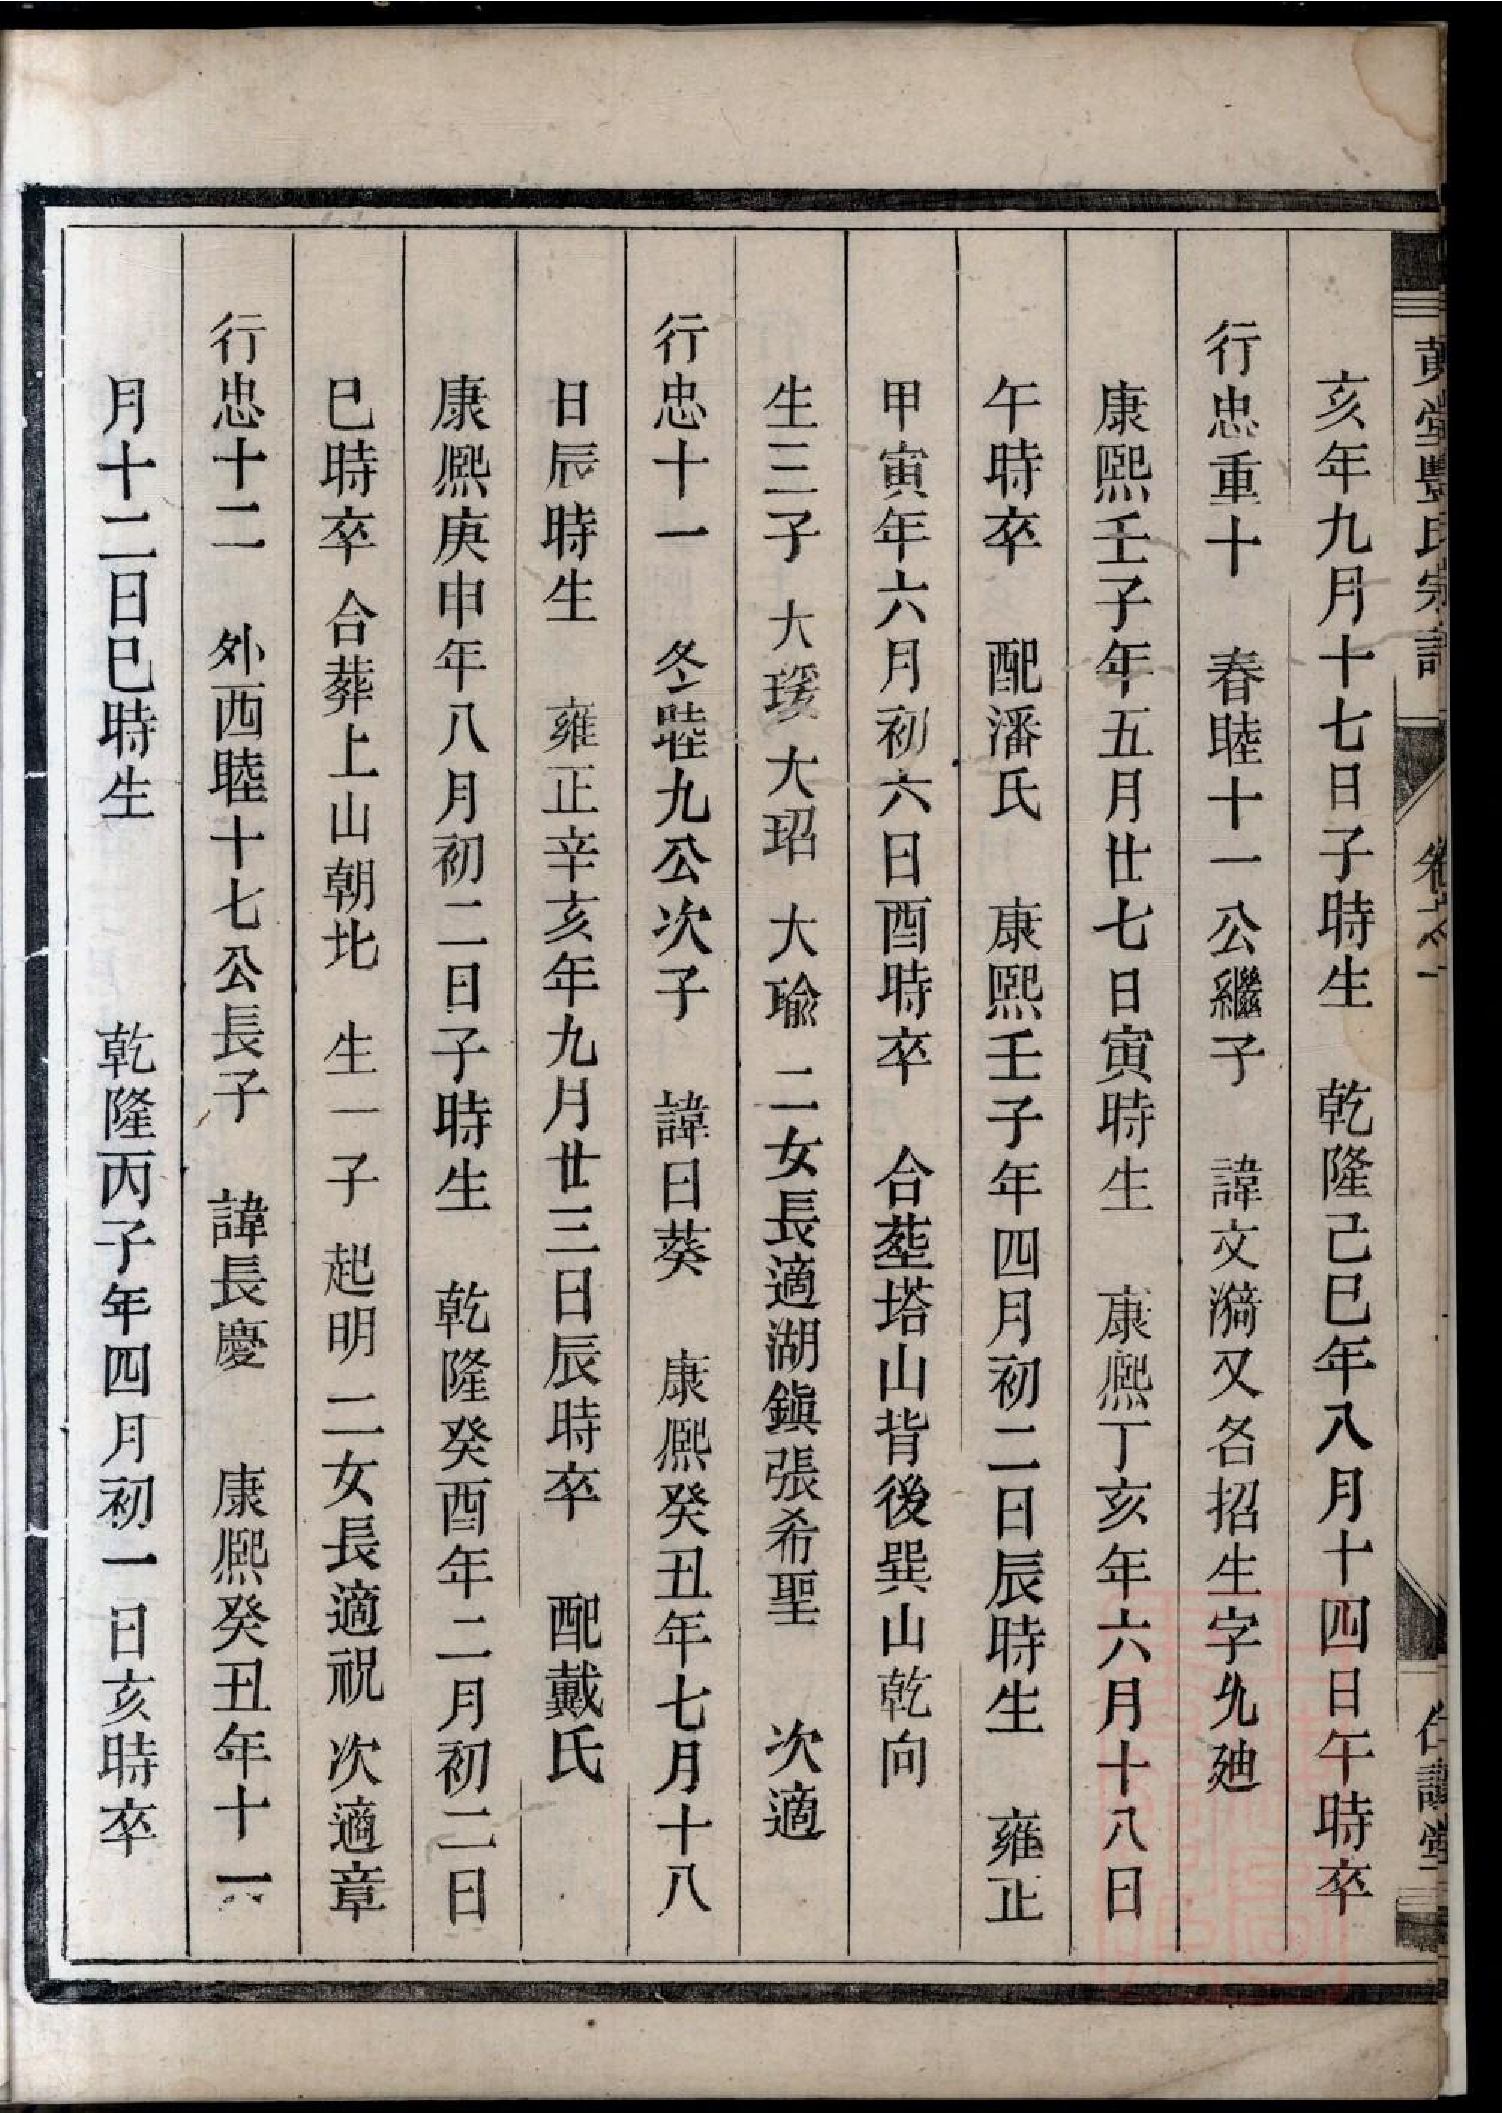 黃堂豐氏宗譜
卷
亥年九月十七日子時生　乾隆己巳年八月十四日午時卒
行忠重十　春睦十一公繼子　諱文漪又名招生字九廸
康熙壬子年五月廿七日寅時生　康熙丁亥年六月十八日
午時卒　配潘氏　康熙壬子年四月初二日辰時生　雍正
甲寅年六月初六日酉時卒　合塟塔山背後巽山乾向
生三子　大瑗　大玿　大瑜　二女長適湖鎭張希聖　次適
行忠十一　冬睦九公次子　諱日葵　康熙癸丑年七月十八
日辰時生　雍正辛亥年九月廿三日辰時卒　配戴氏
康熙庚申年八月初二日子時生　乾隆癸酉年二月初二日
巳時卒　合葬上山朝北　生一子　起明　二女長適祝　次適章
行忠十二　外西睦十七公長子　諱長慶　康熙癸丑年十一
月十二日巳時生　乾隆丙子年四月初一日亥時卒